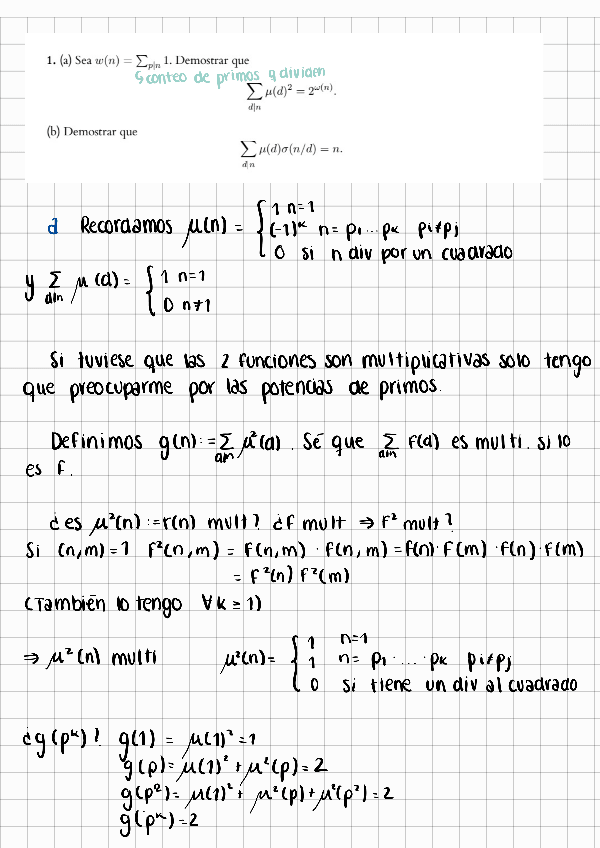 1. (a) Sea w(n) = ∑_{p|n} 1. Demostrar que
↳conteo de primos q dividen
∑_{d|n} μ(d)² = 2^{ω(n)}.
(b) Demostrar que
∑_{d|n} μ(d)σ(n/d) = n.
a Recordamos μ(n) = { 1 n=1
(-1)^k n= p₁...pₖ pᵢ≠pⱼ
0 si n div por un cuadrado
y ∑_{d|n} μ(d) = { 1 n=1
0 n≠1
Si tuviese que las 2 funciones son multiplicativas solo tengo
que preocuparme por las potencias de primos.
Definimos g(n) := ∑_{d|n} μ²(d). Sé que ∑_{d|n} f(d) es multi. si lo
es f.
¿es μ²(n) := r(n) mult? ¿f mult ⇒ f² mult?
Si (n,m)=1 f²(n,m) = f(n,m) · f(n,m) = f(n)·f(m) ·f(n)·f(m)
= f²(n) f²(m)
(También lo tengo ∀k ≥ 1)
⇒ μ²(n) multi μ²(n) = { 1 n=1
1 n= p₁. ... pₖ pᵢ≠pⱼ
0 si tiene un div al cuadrado
¿g(p^k)? g(1) = μ(1)² = 1
g(p) = μ(1)² + μ²(p) = 2
g(p²) = μ(1)² + μ²(p) + μ²(p²) = 2
g(p^k) = 2